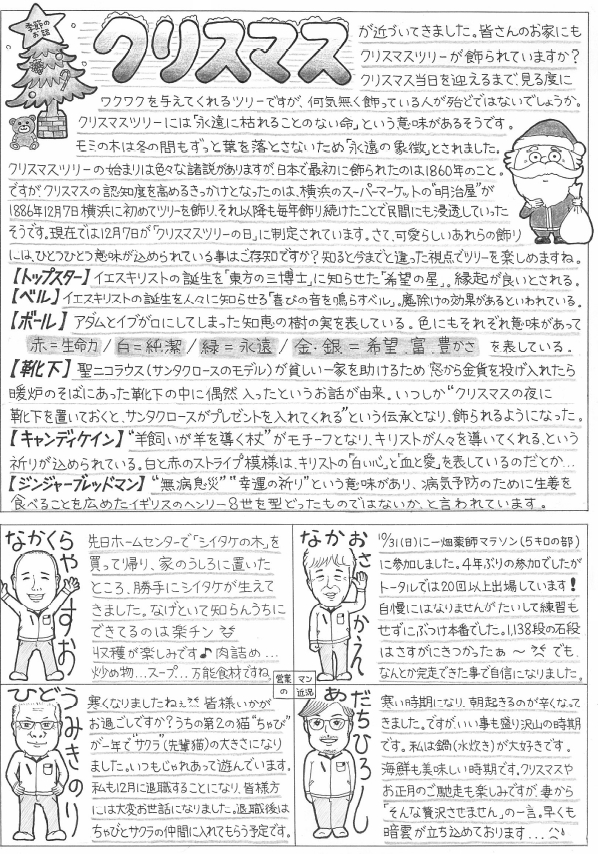 季節の
お話
クリスマス
が近づいてきました。皆さんのお家にも
クリスマスツリーが飾られていますか?
クリスマス当日を迎えるまで、見る度に
ワクワクを与えてくれるツリーですが、何気無く飾っている人が殆どではないでしょうか。
クリスマスツリーには「永遠に枯れることのない命」という意味があるそうです。
モミの木は冬の間もずっと葉を落とさないため“永遠の象徴”とされました。
クリスマスツリーの始まりは色々な諸説がありますが、日本で最初に飾られたのは1860年のこと。
ですが、クリスマスの認知度を高めるきっかけとなったのは、横浜のスーパーマーケットの“明治屋”が
1886年12月7日横浜に初めてツリーを飾り、それ以降も毎年飾り続けたことで民間にも浸透していった
そうです。現在では12月7日が「クリスマスツリーの日」に制定されています。さて、可愛らしいあれらの飾り
には、ひとつひとつ意味が込められている事はご存知ですか?知ると今までと違った視点でツリーを楽しめますね。
【トップスター】イエスキリストの誕生を「東方の三博士」に知らせた「希望の星」。縁起が良いとされる。
【ベル】イエスキリストの誕生を人々に知らせる「喜びの音を鳴らすベル」。魔除けの効果があるといわれている。
【ボール】アダムとイブが口にしてしまった知恵の樹の実を表している。色にもそれぞれ意味があって
赤=生命力/白=純潔/緑=永遠/金・銀=希望、富、豊かさ を表している。
【靴下】聖ニコラウス(サンタクロースのモデル)が貧しい一家を助けるため、窓から金貨を投げ入れたら
暖炉のそばにあった靴下の中に偶然入ったというお話が由来。いつしか“クリスマスの夜に
靴下を置いておくと、サンタクロースがプレゼントを入れてくれる”という伝承となり、飾られるようになった。
【キャンディケイン】“羊飼いが羊を導く杖”がモチーフとなり、キリストが人々を導いてくれる、という
祈りが込められている。白と赤のストライプ模様は、キリストの「白い心」と「血と愛」を表しているのだとか…
【ジンジャーブレッドマン】“無病息災”“幸運の祈り”という意味があり、病気予防のために生姜を
食べることを広めたイギリスのヘンリー8世を型どったものではないか、と言われています。
なかくらやすお
先日ホームセンターで「シイタケの木」を
買って帰り、家のうしろに置いた
ところ、勝手にシイタケが生えて
きました。なげといて知らんうちに
できてるのは楽チン
収穫が楽しみです♪肉詰め…
炒め物…スープ…万能食材ですね。
なかおさかえ
10/31(日)に一畑薬師マラソン(5キロの部)
に参加しました。4年ぶりの参加でしたが
トータルでは20回以上出場しています!
自慢にはなりませんがたいして練習も
せずにぶっつけ本番でした。1,138段の石段
はさすがにきつかったぁ~でも、
なんとか完走できた事で自信になりました。
営業マン
の近況
ひどうみきのり
寒くなりましたねぇ皆様いかが
お過ごしですか?うちの第2の猫“ちゃび”
が一年で“サクラ”(先輩猫)の大きさになり
ました。いつもじゃれあって遊んでいます。
私も12月に退職することになり、皆様方
には大変お世話になりました。退職後は
ちゃびとサクラの仲間に入れてもらう予定です。
あだちひろし
寒い時期になり、朝起きるのが辛くなって
きました。ですが、いい事も盛り沢山の時期
です。私は鍋(水炊き)が大好きです。
海鮮も美味しい時期です。クリスマスや
お正月のご馳走も楽しみですが、妻から
「そんな贅沢させません」の一言。早くも
暗雲が立ち込めております…